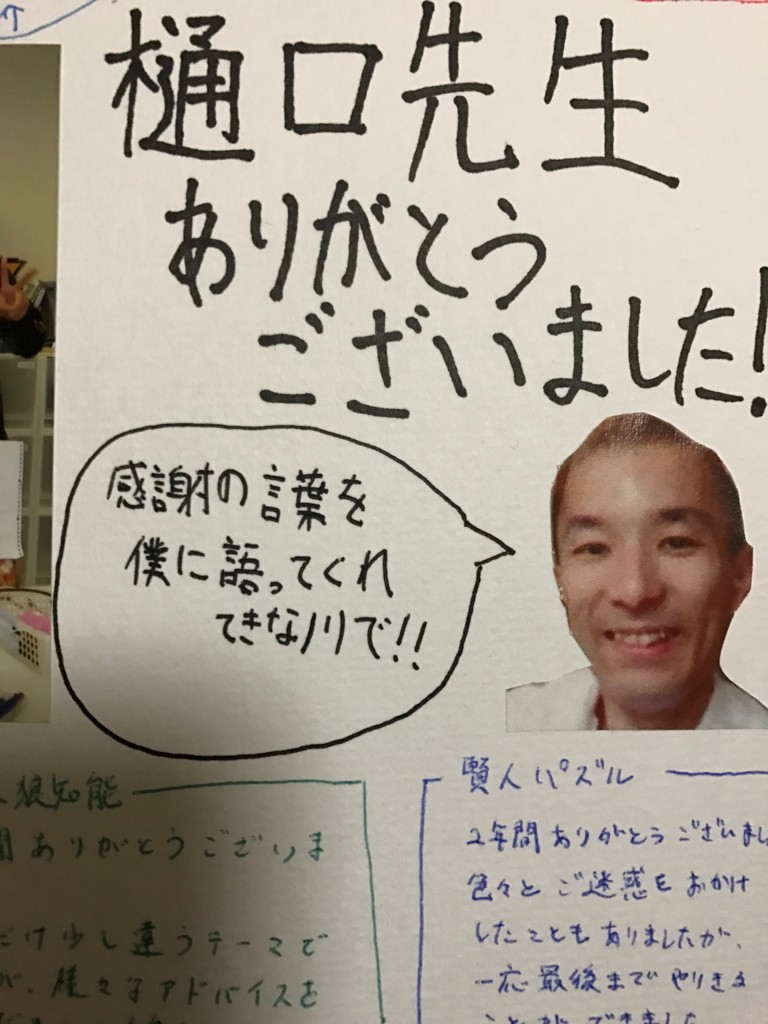 樋口先生
ありがとう
ございました!
感謝の言葉を
僕に語ってくれ
てきなノリで!!
狼知能
ありがとうございま
だけ少し違うテーマで
が、様々なアドバイスを
賢人パズル
2年間ありがとうございまし
色々とご迷惑をおかけ
したこともありましたが、
一応最後までやりきる